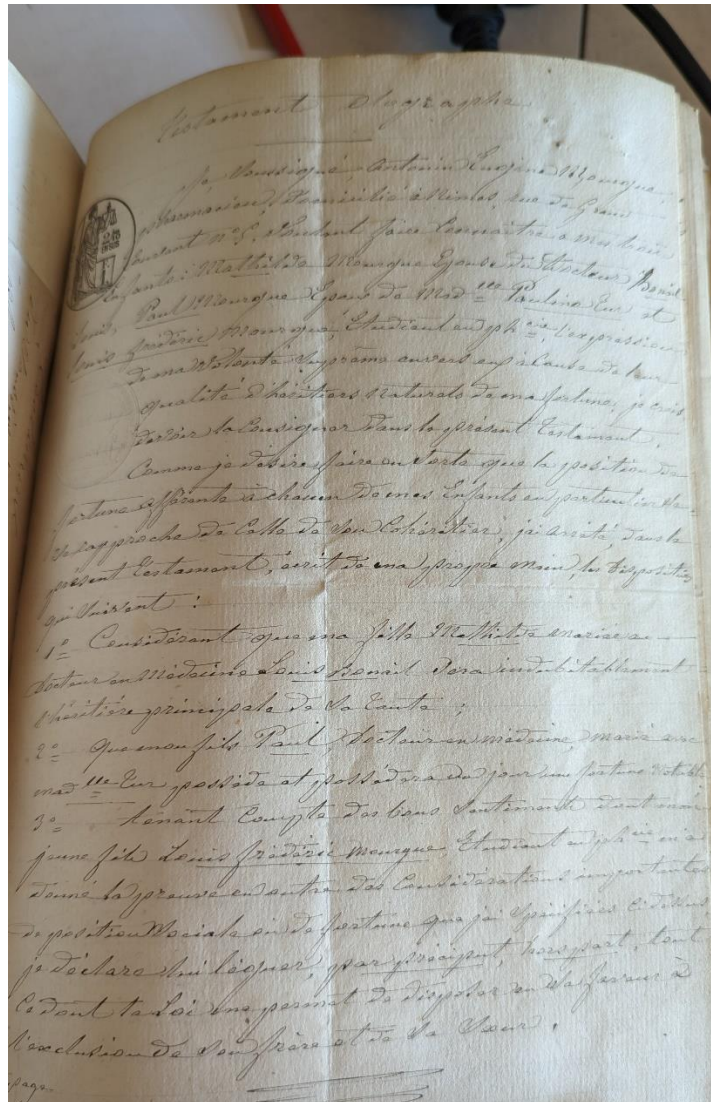 Testament Olographe
Je Soussigné Antonin Eugène Mourgue,
pharmacien Domicilié à Nimes, rue du Grand
Courant n° 5, Voulant faire Connaître à mes trois
Enfants: Mathilde Mourgue Epouse du Docteur
Louis, Paul Mourgue Epoux de Mad lle Pauline Tur et
Louis frédéric Mourgue, Etudiant en ph cie, l'expression
de ma Volonté Suprême envers eux à Cause de leur
qualité d'héritiers naturels de ma fortune, je crois
devoir la Consigner Dans le présent Testament.
Comme je désire faire en Sorte que la position de
fortune afférente à chacun de mes Enfants en particulier
se rapproche de Celle de Son Cohéritier, j'ai arrêté, dans le
présent Testament, écrit de ma propre main, les Dispositions
qui Suivent :
1° Considérant que ma fille Mathilde mariée au
Docteur en Médecine Louis Sera indubitablement
l'héritière principale de Sa Tante ;
2° que mon fils Paul, Docteur en médecine, marié avec
mad lle Tur possède et possédera un jour une fortune notable
3° tenant Compte des bons Sentiments dont mon
jeune fils Louis frédéric mourgue, Etudiant en ph cie m'a
donné la preuve en outre des Considérations importantes
de position Sociale ou de fortune que j'ai Spécifiées ci dessus,
je déclare lui léguer, par préciput, hors part, tout
Ce dont la Loi me permet de disposer en Sa faveur à
l'exclusion de Son frère et de Sa Sœur.
page